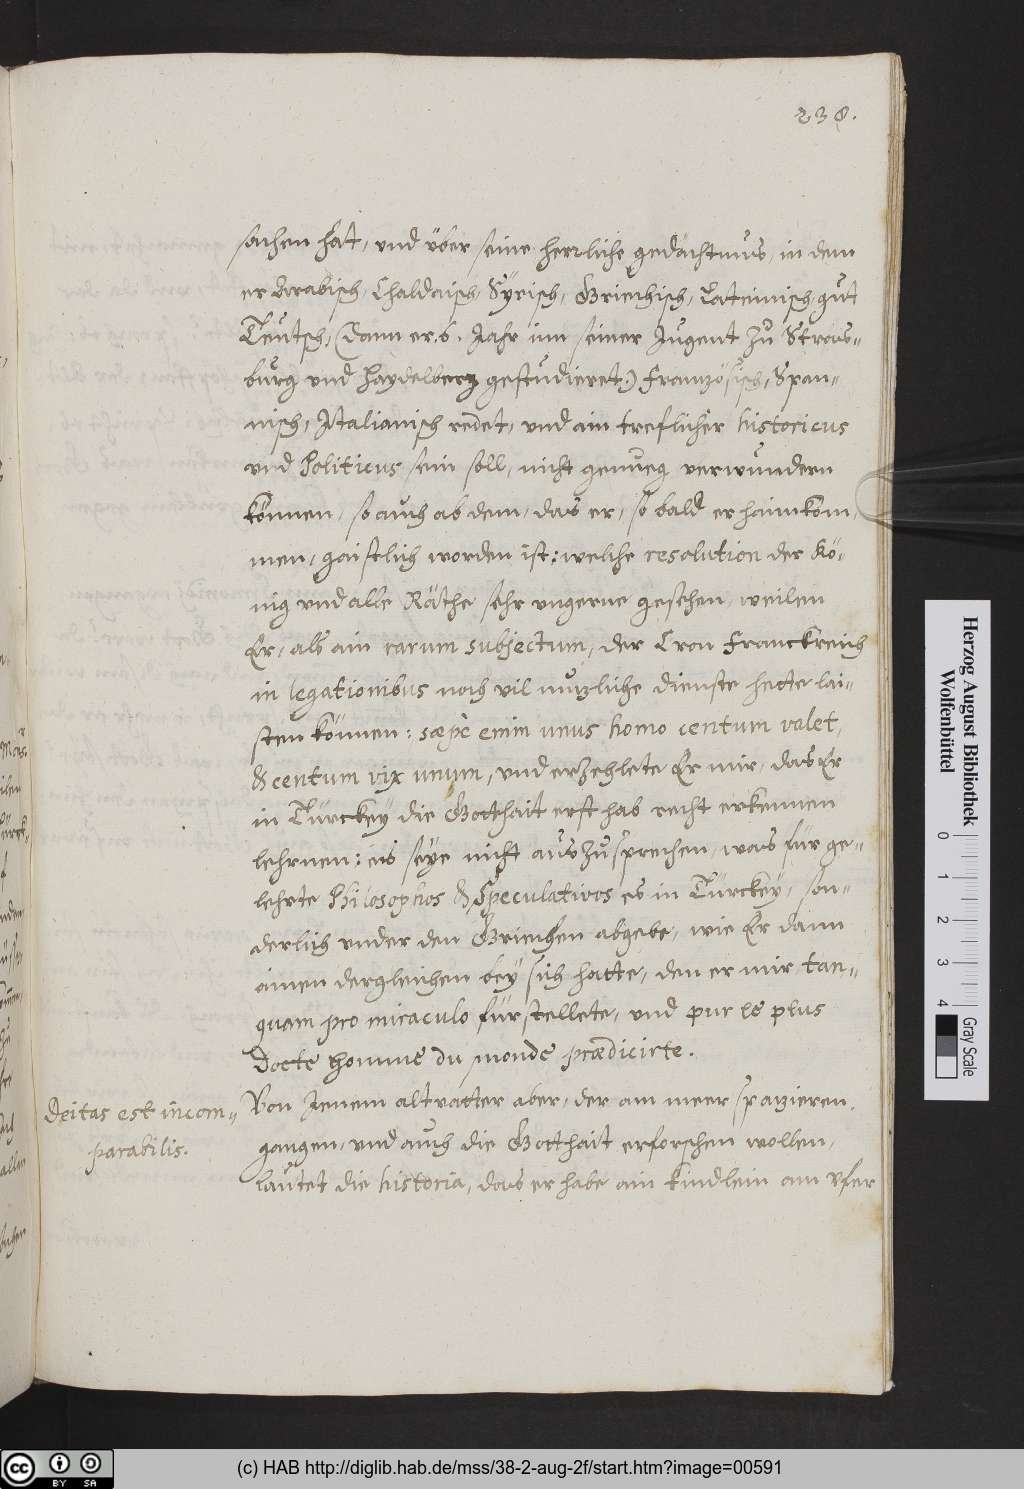 238.
sachen hat, und über seine herrliche gedächtnus, in dem
er Arabisch, Chaldaisch, Syrisch, Griechisch, Lateinisch, gut
Teutsch, (dann er 6. Jahr inn seiner Jugent zu Stras-
burg und Haydelberg gestudieret:) Französisch, Span-
nisch, Italianisch redet, und ain treflicher historicus
und Politicus sein soll, nicht genueg verwundern
können, so auch ab dem, das er, so bald er haimkom,
men, gaistlich worden ist: welche resolution der Kö-
nig vnd alle Räthe sehr ungerne gesehen, weilen
Er, als ain rarum subjectum, der Cron Franckreich
in legationibus noch vil nuzliche dienste hette lai-
sten können: sæpè enim unus homo centum valet,
& centum vix unum, und erzehlete Er mir, das Er
in Türckey die Gotthait erst hab recht erkennen
lehrnen: es seye nicht auszusprechen, was für ge-
lehrte Philosophos & Speculativos es in Türckey, son-
derlich vnder den Griechen abgebe, wie Er dann
ainen dergleichen bey sich hatte, den er mir, tan-
quam pro miraculo fürstellete, und pur le plus
Docte homme du monde prædicirte.
Deitas est incom-
parabilis.
Von Jenem altvatter aber, der am meer spazieren,
gangen, und auch die Gotthait erforschen wollen,
lautet die historia, das er habe ain Kindlein am Vfer
Herzog August Bibliothek
Wolfenbüttel
0 1 2 3 4
Gray Scale
cc BY SA
(c) HAB http://diglib.hab.de/mss/38-2-aug-2f/start.htm?image=00591